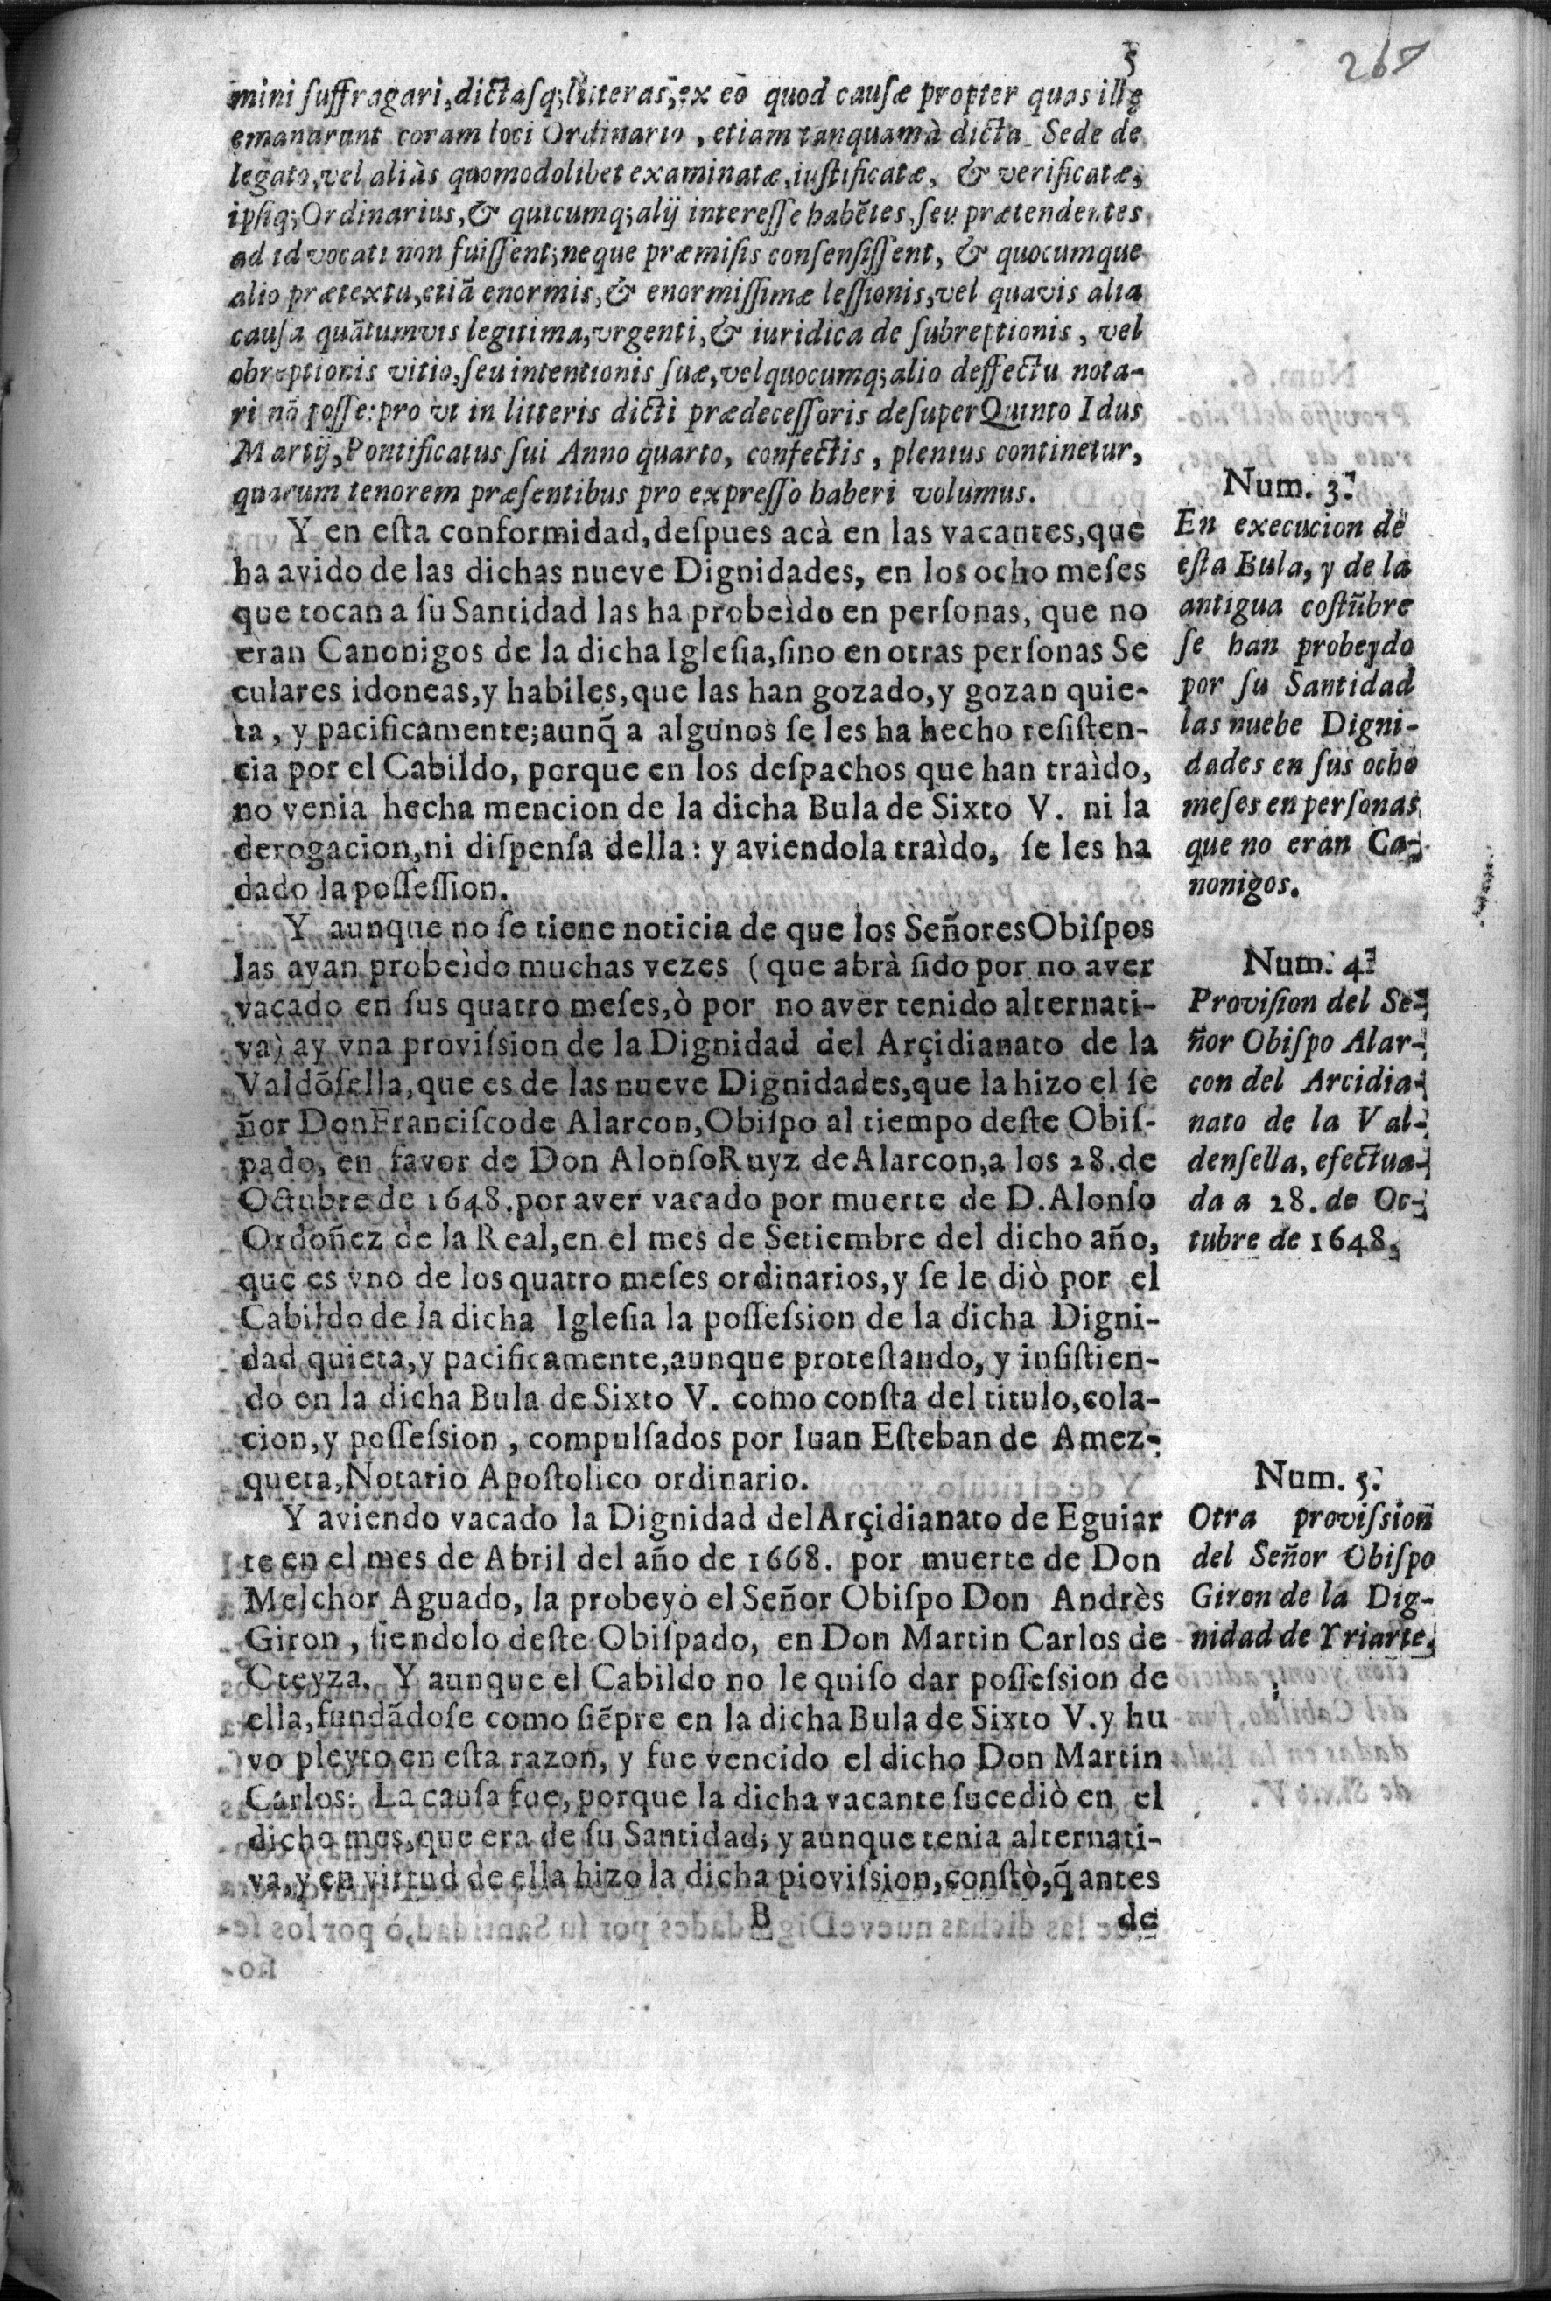 5
267
mini ſuffragari, dictaſq; litteras, ex eo quod cauſæ propter quas illę
emanarunt coram loci Ordinario, etiam tanquam à dicta Sede de
legato, vel aliàs quomodolibet examinatæ, iuſtificatæ, & verificatæ,
ipſiq; Ordinarius, & quicumq; alij intereſſe habẽtes, ſeu prætendentes
ad id vocati non fuiſſent; neque præmisis conſenſiſſent, & quocumque
alio prætextu, etiã enormis, & enormiſſimæ leſſionis, vel quavis alia
cauſa quãtumvis legitima, vrgenti, & iuridica de ſubreptionis, vel
obreptionis vitio, ſeu intentionis ſuæ, vel quocumq; alio deffectu nota-
ri nõ poſſe: pro vt in litteris dicti prædeceſſoris deſuper Quinto Idus
Martij, Pontificatus ſui Anno quarto, confectis, plenius continetur,
quarum tenorem præſentibus pro expreſſo haberi volumus.
Y en eſta conformidad, deſpues acà en las vacantes, que
ha avido de las dichas nueve Dignidades, en los ocho meſes
que tocan a ſu Santidad las ha probeìdo en perſonas, que no
eran Canonigos de la dicha Igleſia, ſino en otras perſonas Se
culares idoneas, y habiles, que las han gozado, y gozan quie-
ta, y pacificamente; aunq̃ a algunos ſe les ha hecho reſiſten-
cia por el Cabildo, porque en los deſpachos que han traìdo,
no venia hecha mencion de la dicha Bula de Sixto V. ni la
derogacion, ni diſpenſa della: y aviendola traìdo, ſe les ha
dado la poſſeſſion.
Y aunque no ſe tiene noticia de que los Señores Obiſpos
las ayan probeìdo muchas vezes (que abrà ſido por no aver
vacado en ſus quatro meſes, ò por no aver tenido alternati-
va) ay vna proviſsion de la Dignidad del Arçidianato de la
Valdõſella, que es de las nueve Dignidades, que la hizo el ſe
ñor Don Franciſco de Alarcon, Obiſpo al tiempo deſte Obiſ-
pado, en favor de Don Alonſo Ruyz de Alarcon, a los 28. de
Octubre de 1648. por aver vacado por muerte de D. Alonſo
Ordoñez de la Real, en el mes de Setiembre del dicho año,
que es vno de los quatro meſes ordinarios, y ſe le diò por el
Cabildo de la dicha Igleſia la poſſeſsion de la dicha Digni-
dad quieta, y pacificamente, aunque proteſtando, y inſiſtien-
do en la dicha Bula de Sixto V. como conſta del titulo, cola-
cion, y poſſeſsion, compulſados por Iuan Eſteban de Amez-
queta, Notario Apoſtolico ordinario.
Y aviendo vacado la Dignidad del Arçidianato de Eguiar
te en el mes de Abril del año de 1668. por muerte de Don
Melchor Aguado, la probeyò el Señor Obiſpo Don Andrès
Giron, ſiendolo deſte Obiſpado, en Don Martin Carlos de
Oteyza. Y aunque el Cabildo no le quiſo dar poſſeſsion de
ella, fundãdoſe como ſiẽpre en la dicha Bula de Sixto V. y hu
vo pleyto en eſta razon, y fue vencido el dicho Don Martin
Carlos: La cauſa fue, porque la dicha vacante ſucediò en el
dicho mes, que era de ſu Santidad; y aunque tenia alternati-
va, y en virtud de ella hizo la dicha proviſsion, conſtò, q̃ antes
B de
Num. 3.
En execucion de
eſta Bula, y de la
antigua coſtũbre
ſe han probeydo
por ſu Santidad
las nuebe Digni-
dades en ſus ocho
meſes en perſonas
que no eran Ca-
nonigos.
Num. 4.
Proviſion del Se-
ñor Obiſpo Alar-
con del Arcidia-
nato de la Val-
denſella, efectua-
da a 28. de Oc-
tubre de 1648.
Num. 5.
Otra proviſsion
del Señor Obiſpo
Giron de la Dig-
nidad de Yriarte.